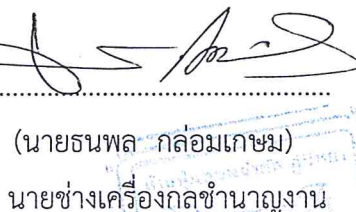 (นายธนพล กล่อมเกษม)
นายช่างเครื่องกลชำนาญงาน